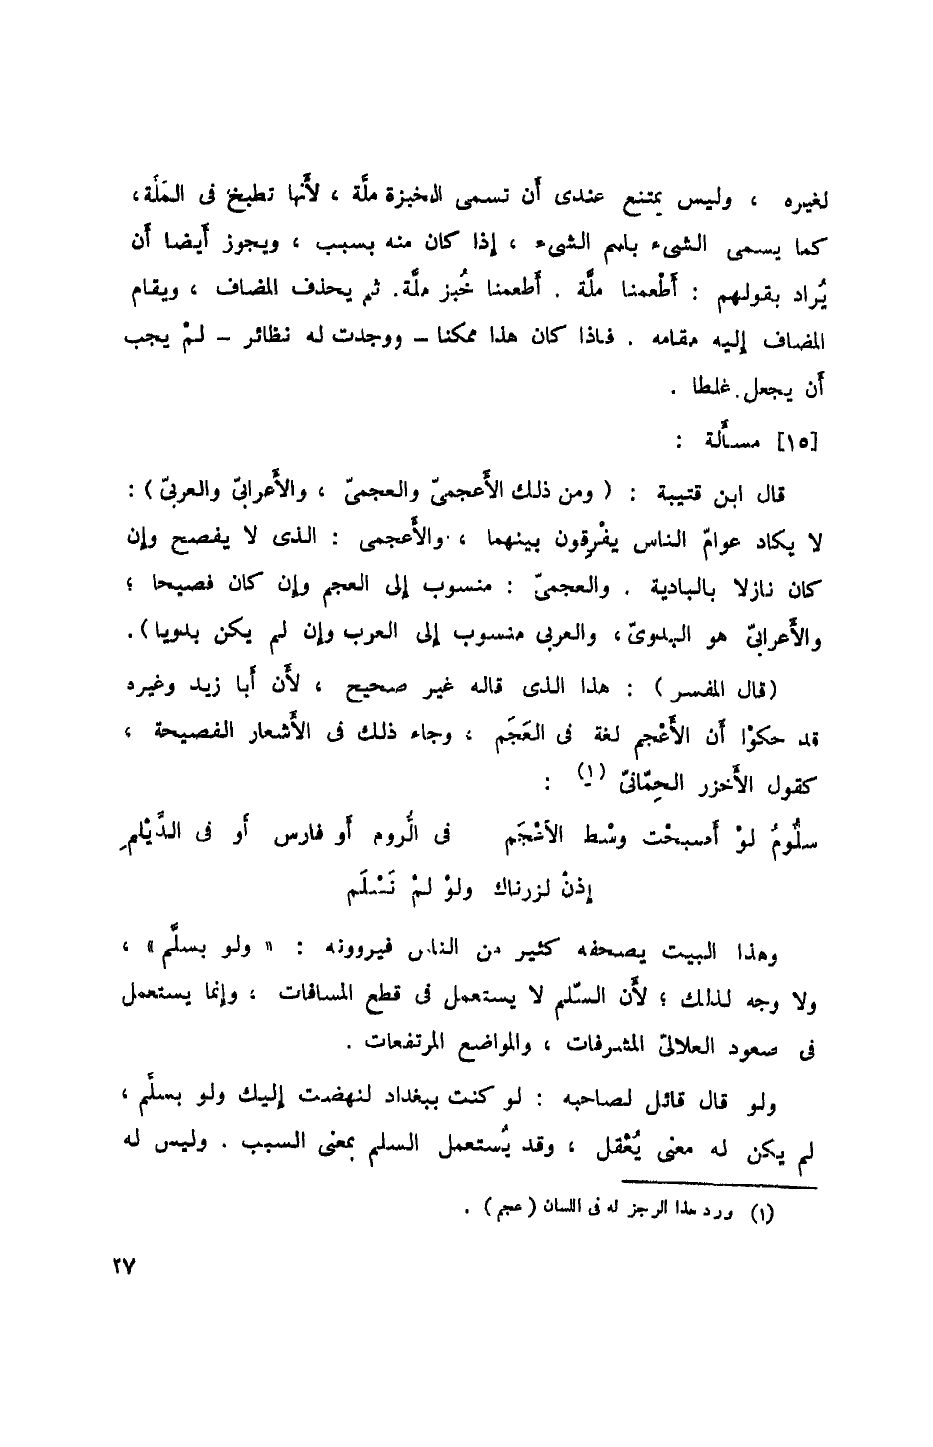 لغيره ، وليس يمتنع عندى أن تسمى الخبزة ملَّة ، لأَنها تطبخ فى المَلَّة،
كما يسمى الشىء باسم الشىء ، إذا كان منه بسبب ، ويجوز أَيضا أَن
يُراد بقولهم : أَطْعمنا ملَّة . أَطعمنا خُبز ملَّة. ثم يحذف المضاف ، ويقام
المضاف إليه مقامه . فاذا كان هذا ممكنا – ووجدت له نظائر – لمْ يجب
أَن يجعل غلطا .
[١٥] مسأَلة :
قال ابن قتيبة : ( ومن ذلك الأَعجمىّ والعجمىّ ، والأَعرابىّ والعربىّ ) :
لا يكاد عوامّ الناس يفْرِقون بينهما ، والأَعجمى : الذى لا يفصح وإن
كان نازلا بالبادية . والعجمىّ : منسوب إلى العجم وإن كان فصيحا ؛
والأَعرابىّ هو البدوىّ، والعربى منسوب إلى العرب وإن لم يكن بدويا ).
(قال المفسر ) : هذا الذى قاله غير صحيح ، لأَن أَبا زيد وغيره
قد حكوْا أَن الأَعْجم لغة فى العَجَم ، وجاء ذلك فى الأَشعار الفصيحة ،
كقول الأَخزر الحِمّانىّ (١) :
سلُّومُ لوْ أَصبحْت وسْط الأعْجَم فى الُّروم أَو فارس أَو فى الدَّيْلمِ
إذنْ لزرناك ولوْ لمْ نَسْلَم
وهذا البيت يصحفه كثير من الناس فيروونه : « ولو بسلَّم » ،
ولا وجه لذلك ؛ لأَن السّلم لا يستعمل فى قطع المسافات ، وإنما يستعمل
فى صعود العلالىّ المشرفات ، والمواضع المرتفعات .
ولو قال قائل لصاحبه : لو كنت ببغداد لنهضت إليك ولو بسلَّم ،
لم يكن له معنى يُعْقل ، وقد يُستعمل السلم بمعنى السبب . وليس له
(١) ورد هذا الرجز له فى اللسان ( عجم ) .
٢٧